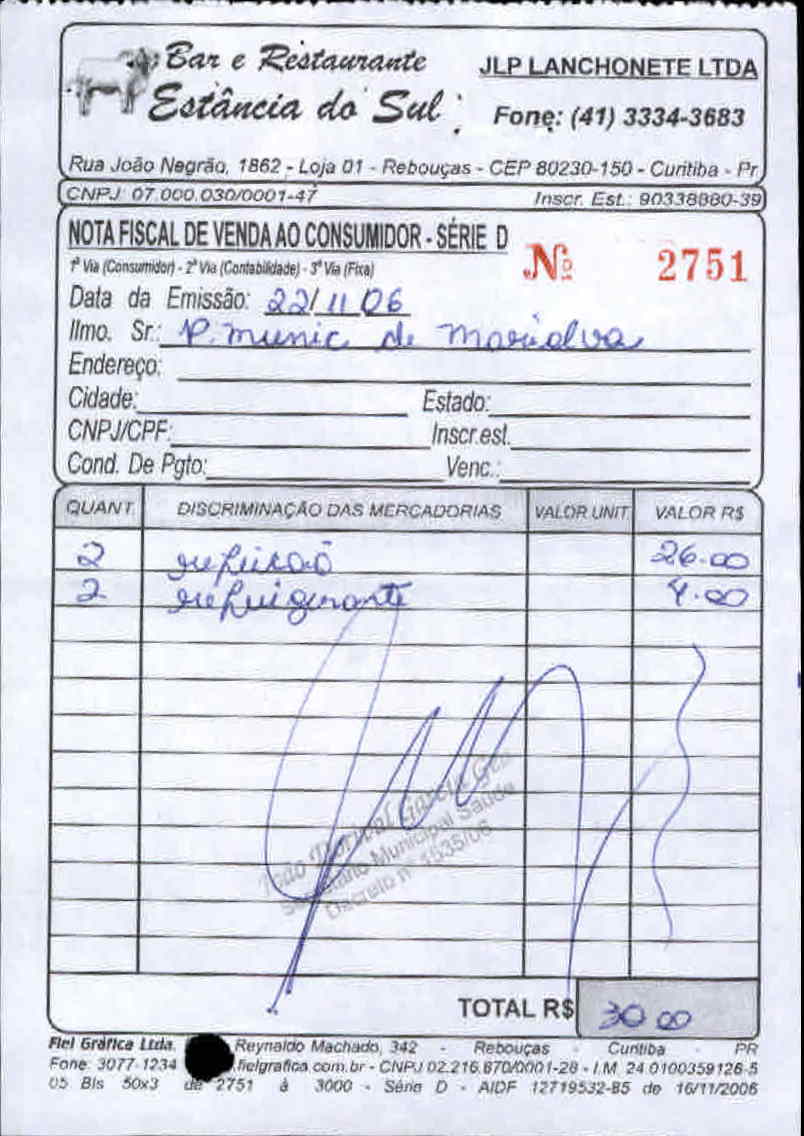 Bar e Restaurante
Estância do Sul
JLP LANCHONETE LTDA
Fone: (41) 3334-3683
Rua João Negrão, 1862 - Loja 01 - Rebouças - CEP 80230-150 - Curitiba - Pr
CNPJ: 07.000.030/0001-47 Inscr. Est.: 90338880-39
NOTA FISCAL DE VENDA AO CONSUMIDOR - SÉRIE D
Nº 2751
1ª Via (Consumidor) - 2ª Via (Contabilidade) - 3ª Via (Fixa)
Data da Emissão: 22/11/06
Ilmo. Sr.: P. munic de marialva
Endereço:
Cidade: Estado:
CNPJ/CPF: Inscr.est.
Cond. De Pgto: Venc.:
QUANT. DISCRIMINAÇÃO DAS MERCADORIAS VALOR UNIT. VALOR R$
2 refeicão 26.00
2 refrigerante 4.00
João Dorival Garcia
Secretario Municipal Saúde
Decreto nº 1535/06
TOTAL R$ 30 00
Fiel Gráfica Ltda. Reynaldo Machado, 342 - Rebouças - Curitiba - PR
Fone: 3077-1234 .fielgrafica.com.br - CNPJ 02.216.870/0001-28 - I.M. 24.0100359126-5
05 Bls 50x3 de 2751 à 3000 - Série D - AIDF 12719532-85 de 16/11/2006